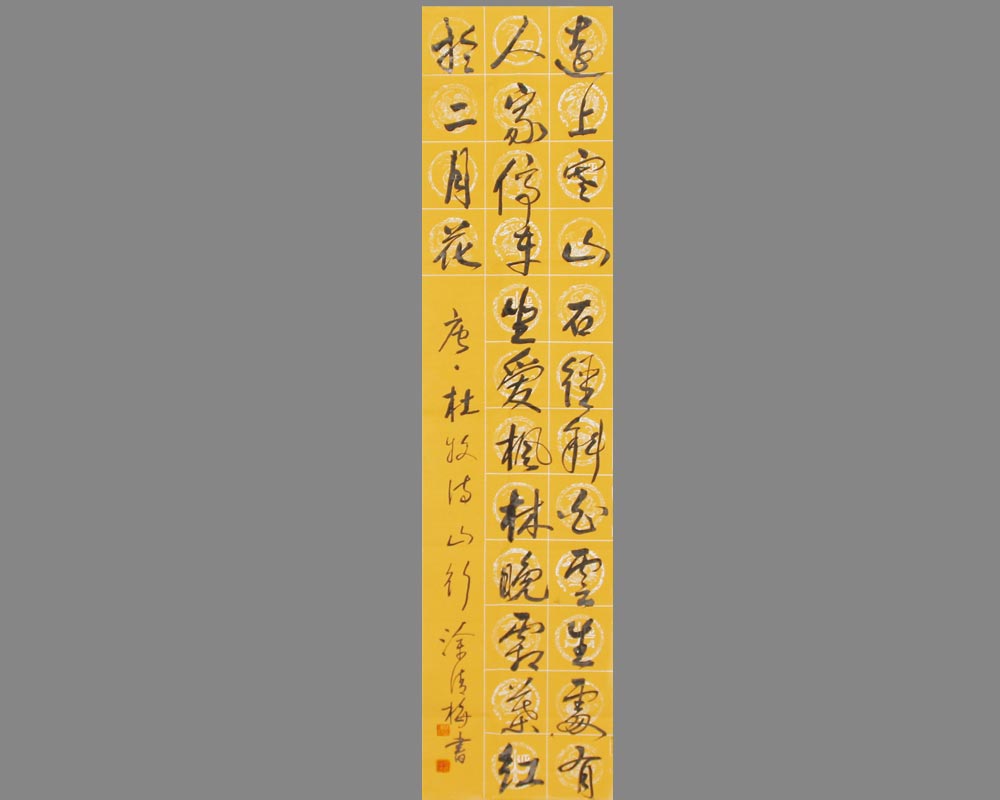 遠上寒山石徑斜白雲生處有
人家停車坐愛楓林晚霜葉紅
於二月花
唐·杜牧詩山行 涂清梅書